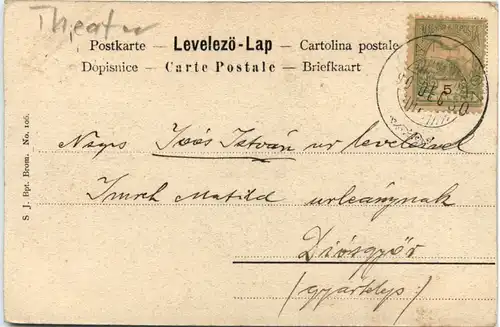 Theater
Postkarte — Levelezö-Lap — Cartolina postale
Dopisnice — Carte Postale — Briefkaart
S. J. Bpt. Brom. No. 106.
5
Nags Joós István ur leveleivel
Imreh Matild urleánynak
Diósgyőr
(gyártelep)